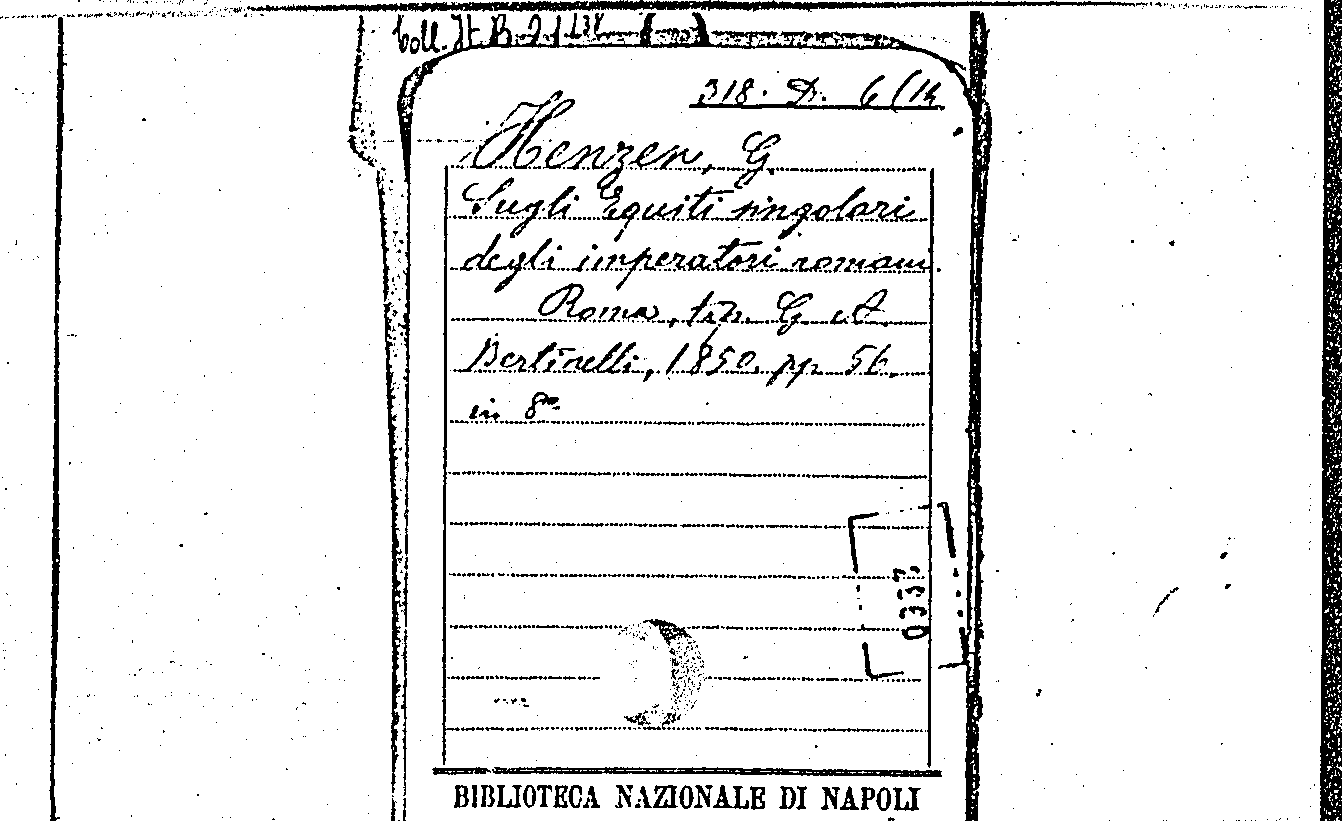 Coll. It. B. 21.138
318. D. 6 (14
Henzen, G.
Sugli Equiti singolari
degli imperatori romani.
Roma, tip. G. A.
Bertinelli, 1850. pp. 56.
in 8º
0337
BIBLIOTECA NAZIONALE DI NAPOLI